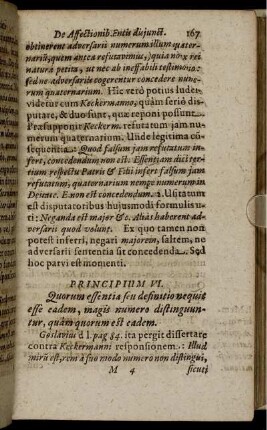 De Affectionib. Entis disjunct. 167
obtinerent adversarii numerum illum quater-
nariũ, quem antea refutavimus,) quia non ex rei
natura petita, ut nec ab ineffabili testimonio:
sed ne adversarii cogerentur concedere nume-
rum quaternarium. Hic verò potius ludere
videtur cum Keckermanno, quàm seriò dis-
putare, & duo sunt, quæ reponi possunt. 1.
Præsupponit Keckerm. refutatum jam nu-
merum quaternarium. Unde legitima con-
sequentia. Quod falsum jam refutatum in-
fert, concedendum non est. Essentiam dici ter-
tium respectu Patris & Filii infert falsum jam
refutatum, quaternarium nempe numerum in
Deitate. E. non est concedendum. 2. Usitatum
est disputatoribus hujusmodi formulis u-
ti: Neganda est major &c. Aliàs haberent ad-
versarii quod volunt. Ex quo tamen non
potest inferri, negari majorem, saltem, ne
adversarii sententia sit concedenda. Sed
hoc parvi est momenti.
PRINCIPIUM VI.
Quorum essentia seu definitio nequit
esse eadem, magis numero distinguun-
tur, quàm quorum est eadem.
Goslavius d. l. pag. 84. ita pergit dissertare
contra Keckermanni responsionem: Illud
mirũ est, rem à suo modo numero non distingui,
M 4 sicuti